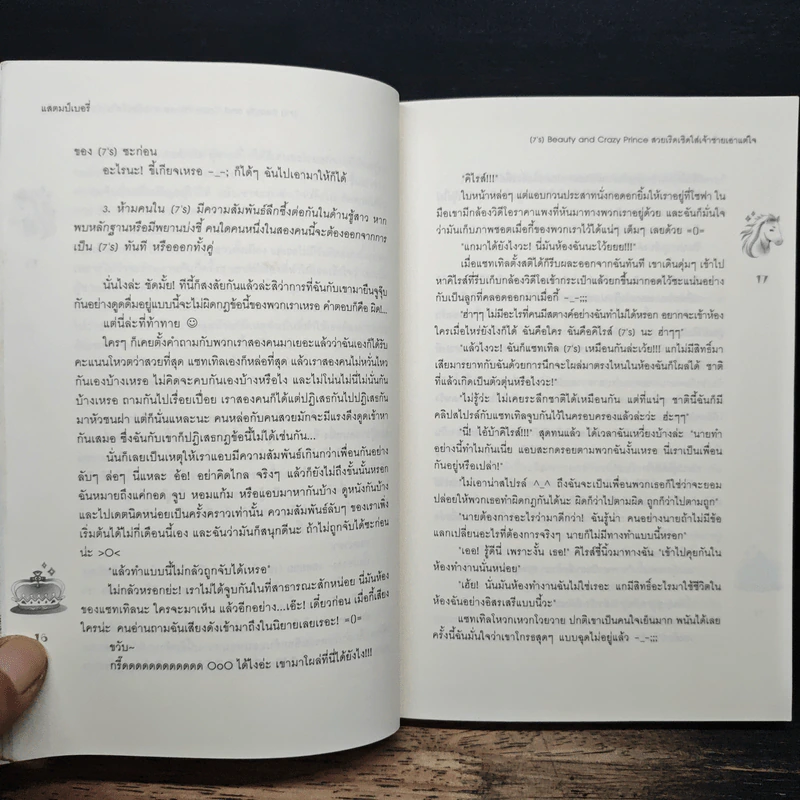 แสตมป์เบอรี่
ของ (7's) ซะก่อน
อะไรนะ! ขี้เกียจเหรอ -_-; ก็ได้ๆ ฉันไปเอามาให้ก็ได้
3. ห้ามคนใน (7's) มีความสัมพันธ์ลึกซึ้งต่อกันในด้านชู้สาว หาก
พบหลักฐานหรือมีพยานบ่งชี้ คนใดคนหนึ่งในสองคนนี้จะต้องออกจากการ
เป็น (7's) ทันที หรือออกทั้งคู่
นั่นไงล่ะ ชัดมั้ย! ทีนี้ก็สงสัยกันแล้วล่ะสิว่าการที่ฉันกับเขามายืนจูจุ๊บ
กันอย่างดูดดื่มอยู่แบบนี้จะไม่ผิดกฎข้อนี้ของพวกเราเหรอ คำตอบก็คือ ผิด!...
แต่นี่ล่ะที่ท้าทาย ☺
ใครๆ ก็เคยตั้งคำถามกับพวกเราสองคนมาเยอะแล้วว่าฉันเองก็ได้รับ
คะแนนโหวตว่าสวยที่สุด แซทเทิลเองก็หล่อที่สุด แล้วเราสองคนไม่หวั่นไหว
กันเองบ้างเหรอ ไม่คิดจะคบกันเองบ้างหรือไง และไม่โน่นไม่นี่ไม่นั่นกัน
บ้างเหรอ ถามกันไปเรื่อยเปื่อย เราสองคนก็ได้แต่ปฏิเสธกันไปปฏิเสธกัน
มาหัวชนฝา แต่ก็นั่นแหละนะ คนหล่อกับคนสวยมักจะมีแรงดึงดูดเข้าหา
กันเสมอ ซึ่งฉันกับเขาก็ปฏิเสธกฎข้อนี้ไม่ได้เช่นกัน...
นั่นก็เลยเป็นเหตุให้เราแอบมีความสัมพันธ์เกินกว่าเพื่อนกันอย่าง
ลับๆ ล่อๆ นี่แหละ อ้อ! อย่าคิดไกล จริงๆ แล้วก็ยังไม่ถึงขั้นนั้นหรอก
ฉันหมายถึงแค่กอด จูบ หอมแก้ม หรือแอบมาหากันบ้าง ดูหนังกันบ้าง
และไปเดตนิดหน่อยเป็นครั้งคราวเท่านั้น ความสัมพันธ์ลับๆ ของเราเพิ่ง
เริ่มต้นได้ไม่กี่เดือนนี้เอง และฉันว่ามันก็สนุกดีนะ ถ้าไม่ถูกจับได้ซะก่อน
น่ะ >O<
"แล้วทำแบบนี้ไม่กลัวถูกจับได้เหรอ"
ไม่กลัวหรอกย่ะ! เราไม่ได้จูบกันในที่สาธารณะสักหน่อย นี่มันห้อง
ของแซทเทิลนะ ใครจะมาเห็น แล้วอีกอย่าง...เอ๊ะ! เดี๋ยวก่อน เมื่อกี้เสียง
ใครน่ะ คนอ่านถามฉันเสียงดังเข้ามาถึงในนิยายเลยเรอะ! =()=
ขวับ~
กรี๊ดดดดดดดดดดดด OoO ได้ไงอ่ะ เขามาโผล่ที่นี่ได้ยังไง!!!
16
(7's) Beauty and Crazy Prince สวยเริ่ดเชิดใส่เจ้าชายเอาแต่ใจ
"คิไรส์!!!"
ใบหน้าหล่อๆ แต่แอบกวนประสาทนั่งกอดอกยิ้มให้เราอยู่ที่โซฟา ใน
มือเขามีกล้องวิดีโอราคาแพงที่หันมาทางพวกเราอยู่ด้วย และฉันก็มั่นใจ
ว่ามันเก็บภาพชอตเมื่อกี้ของพวกเราไว้ได้แน่ๆ เต็มๆ เลยด้วย =()=
"แกมาได้ยังไงวะ! นี่มันห้องฉันนะโว้ยยย!!!"
เมื่อแซทเทิลตั้งสติได้ก็รีบผละออกจากฉันทันที เขาเดินดุ่มๆ เข้าไป
หาคิไรส์ที่รีบเก็บกล้องวิดีโอเข้ากระเป๋าแล้วยกขึ้นมากอดไว้ซะแน่นอย่าง
กับเป็นลูกที่คลอดออกมาเมื่อกี้ -_-;;;
"ฮ่าๆๆ ไม่มีอะไรที่คนมีสตางค์อย่างฉันทำไม่ได้หรอก อยากจะเข้าห้อง
ใครเมื่อไหร่ยังไงก็ได้ ฉันคือใคร ฉันคือคิไรส์ (7's) นะ ฮ่าๆๆ"
"แล้วไงวะ! ฉันก็แซทเทิล (7's) เหมือนกันล่ะเว้ย!!! แกไม่มีสิทธิ์มา
เสียมารยาทกับฉันด้วยการนึกจะโผล่มาตรงไหนในห้องฉันก็โผล่ได้ ชาติ
ที่แล้วเกิดเป็นตัวตุ่นหรือไงวะ!"
"ไม่รู้ว่ะ ไม่เคยระลึกชาติได้เหมือนกัน แต่ที่แน่ๆ ชาตินี้ฉันก็มี
คลิปสไปรส์กับแซทเทิลจูบกันไว้ในครอบครองแล้วล่ะว่ะ ฮ่ะๆๆ"
"นี่! ไอ้บ้าคิไรส์!!!" สุดทนแล้ว ได้เวลาฉันเหวี่ยงบ้างล่ะ "นายทำ
อย่างนี้ทำไมกันเนี่ย แอบสะกดรอยตามพวกฉันงั้นเหรอ นี่เราเป็นเพื่อน
กันอยู่หรือเปล่า!"
"ไม่เอาน่าสไปรส์ ^_^ ถึงฉันจะเป็นเพื่อนพวกเธอก็ใช่ว่าจะยอม
ปล่อยให้พวกเธอทำผิดกฎกันได้นะ ผิดก็ว่าไปตามผิด ถูกก็ว่าไปตามถูก"
"นายต้องการอะไรว่ามาดีกว่า! ฉันรู้น่า คนอย่างนายถ้าไม่มีข้อ
แลกเปลี่ยนอะไรที่ต้องการจริงๆ นายก็ไม่มีทางทำแบบนี้หรอก"
"เออ! รู้ดีนี่ เพราะงั้น เธอ!" คิไรส์ชี้นิ้วมาทางฉัน "เข้าไปคุยกันใน
ห้องทำงานนั่นหน่อย"
"เฮ้ย! นั่นมันห้องทำงานฉันไม่ใช่เรอะ แกมีสิทธิ์อะไรมาใช้ชีวิตใน
ห้องฉันอย่างอิสรเสรีแบบนี้วะ"
แซทเทิลโหวกเหวกโวยวาย ปกติเขาเป็นคนใจเย็นมาก พนันได้เลย
ครั้งนี้ฉันมั่นใจว่าเขาโกรธสุดๆ แบบฉุดไม่อยู่แล้ว -_-;;;
17